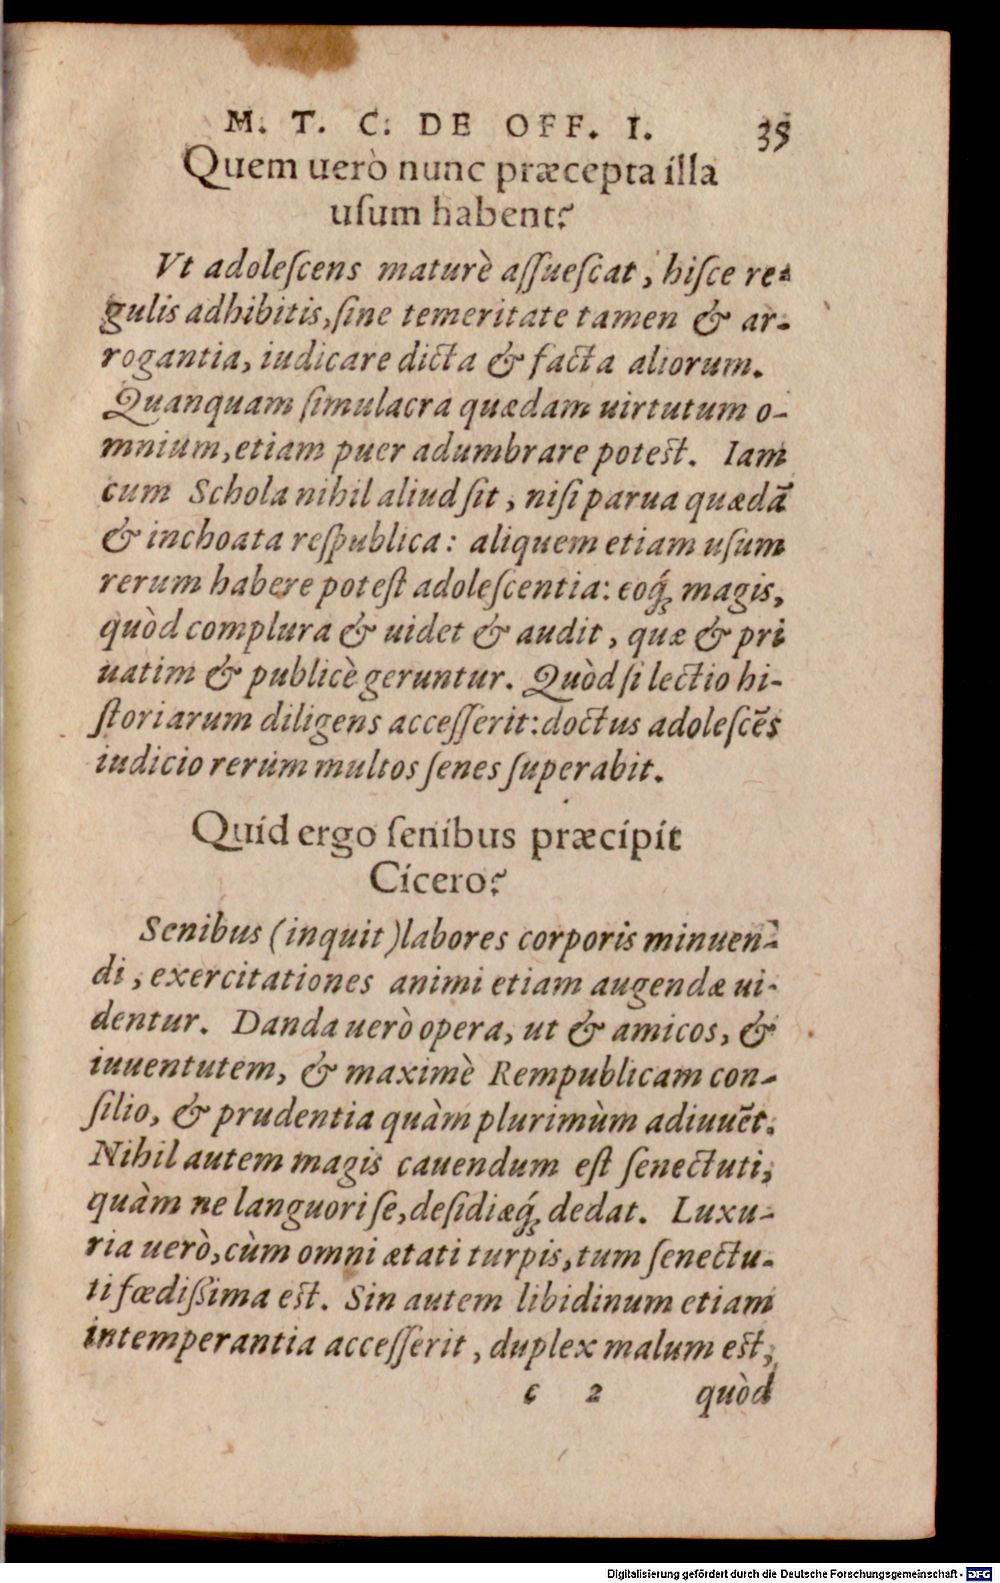 M. T. C. DE OFF. I. 35
Quem uerò nunc præcepta illa
uſum habent?
Vt adoleſcens maturè aſſueſcat, hiſce re-
gulis adhibitis, ſine temeritate tamen & ar-
rogantia, iudicare dicta & facta aliorum.
Quanquam ſimulacra quædam uirtutum o-
mnium, etiam puer adumbrare potest. Iam
cum Schola nihil aliud ſit, niſi parua quædã
& inchoata reſpublica: aliquem etiam uſum
rerum habere poteſt adoleſcentia: eoq́ꝫ magis,
quòd complura & uidet & audit, quæ & pri
uatim & publicè geruntur. Quòd ſi lectio hi-
ſtoriarum diligens acceſſerit: doctus adoleſcẽs
iudicio rerum multos ſenes ſuperabit.
Quid ergo ſenibus præcipit
Cicero?
Senibus (inquit) labores corporis minuen-
di, exercitationes animi etiam augendæ ui-
dentur. Danda uerò opera, ut & amicos, &
iuuentutem, & maximè Rempublicam con-
ſilio, & prudentia quàm plurimùm adiuuẽt.
Nihil autem magis cauendum eſt ſenectuti,
quàm ne languori ſe, deſidiæq́ꝫ dedat. Luxu-
ria uerò, cùm omni ætati turpis, tum ſenectu-
ti fœdißima est. Sin autem libidinum etiam
intemperantia acceſſerit, duplex malum est,
c 2 quòd
Digitalisierung gefördert durch die Deutsche Forschungsgemeinschaft - DFG